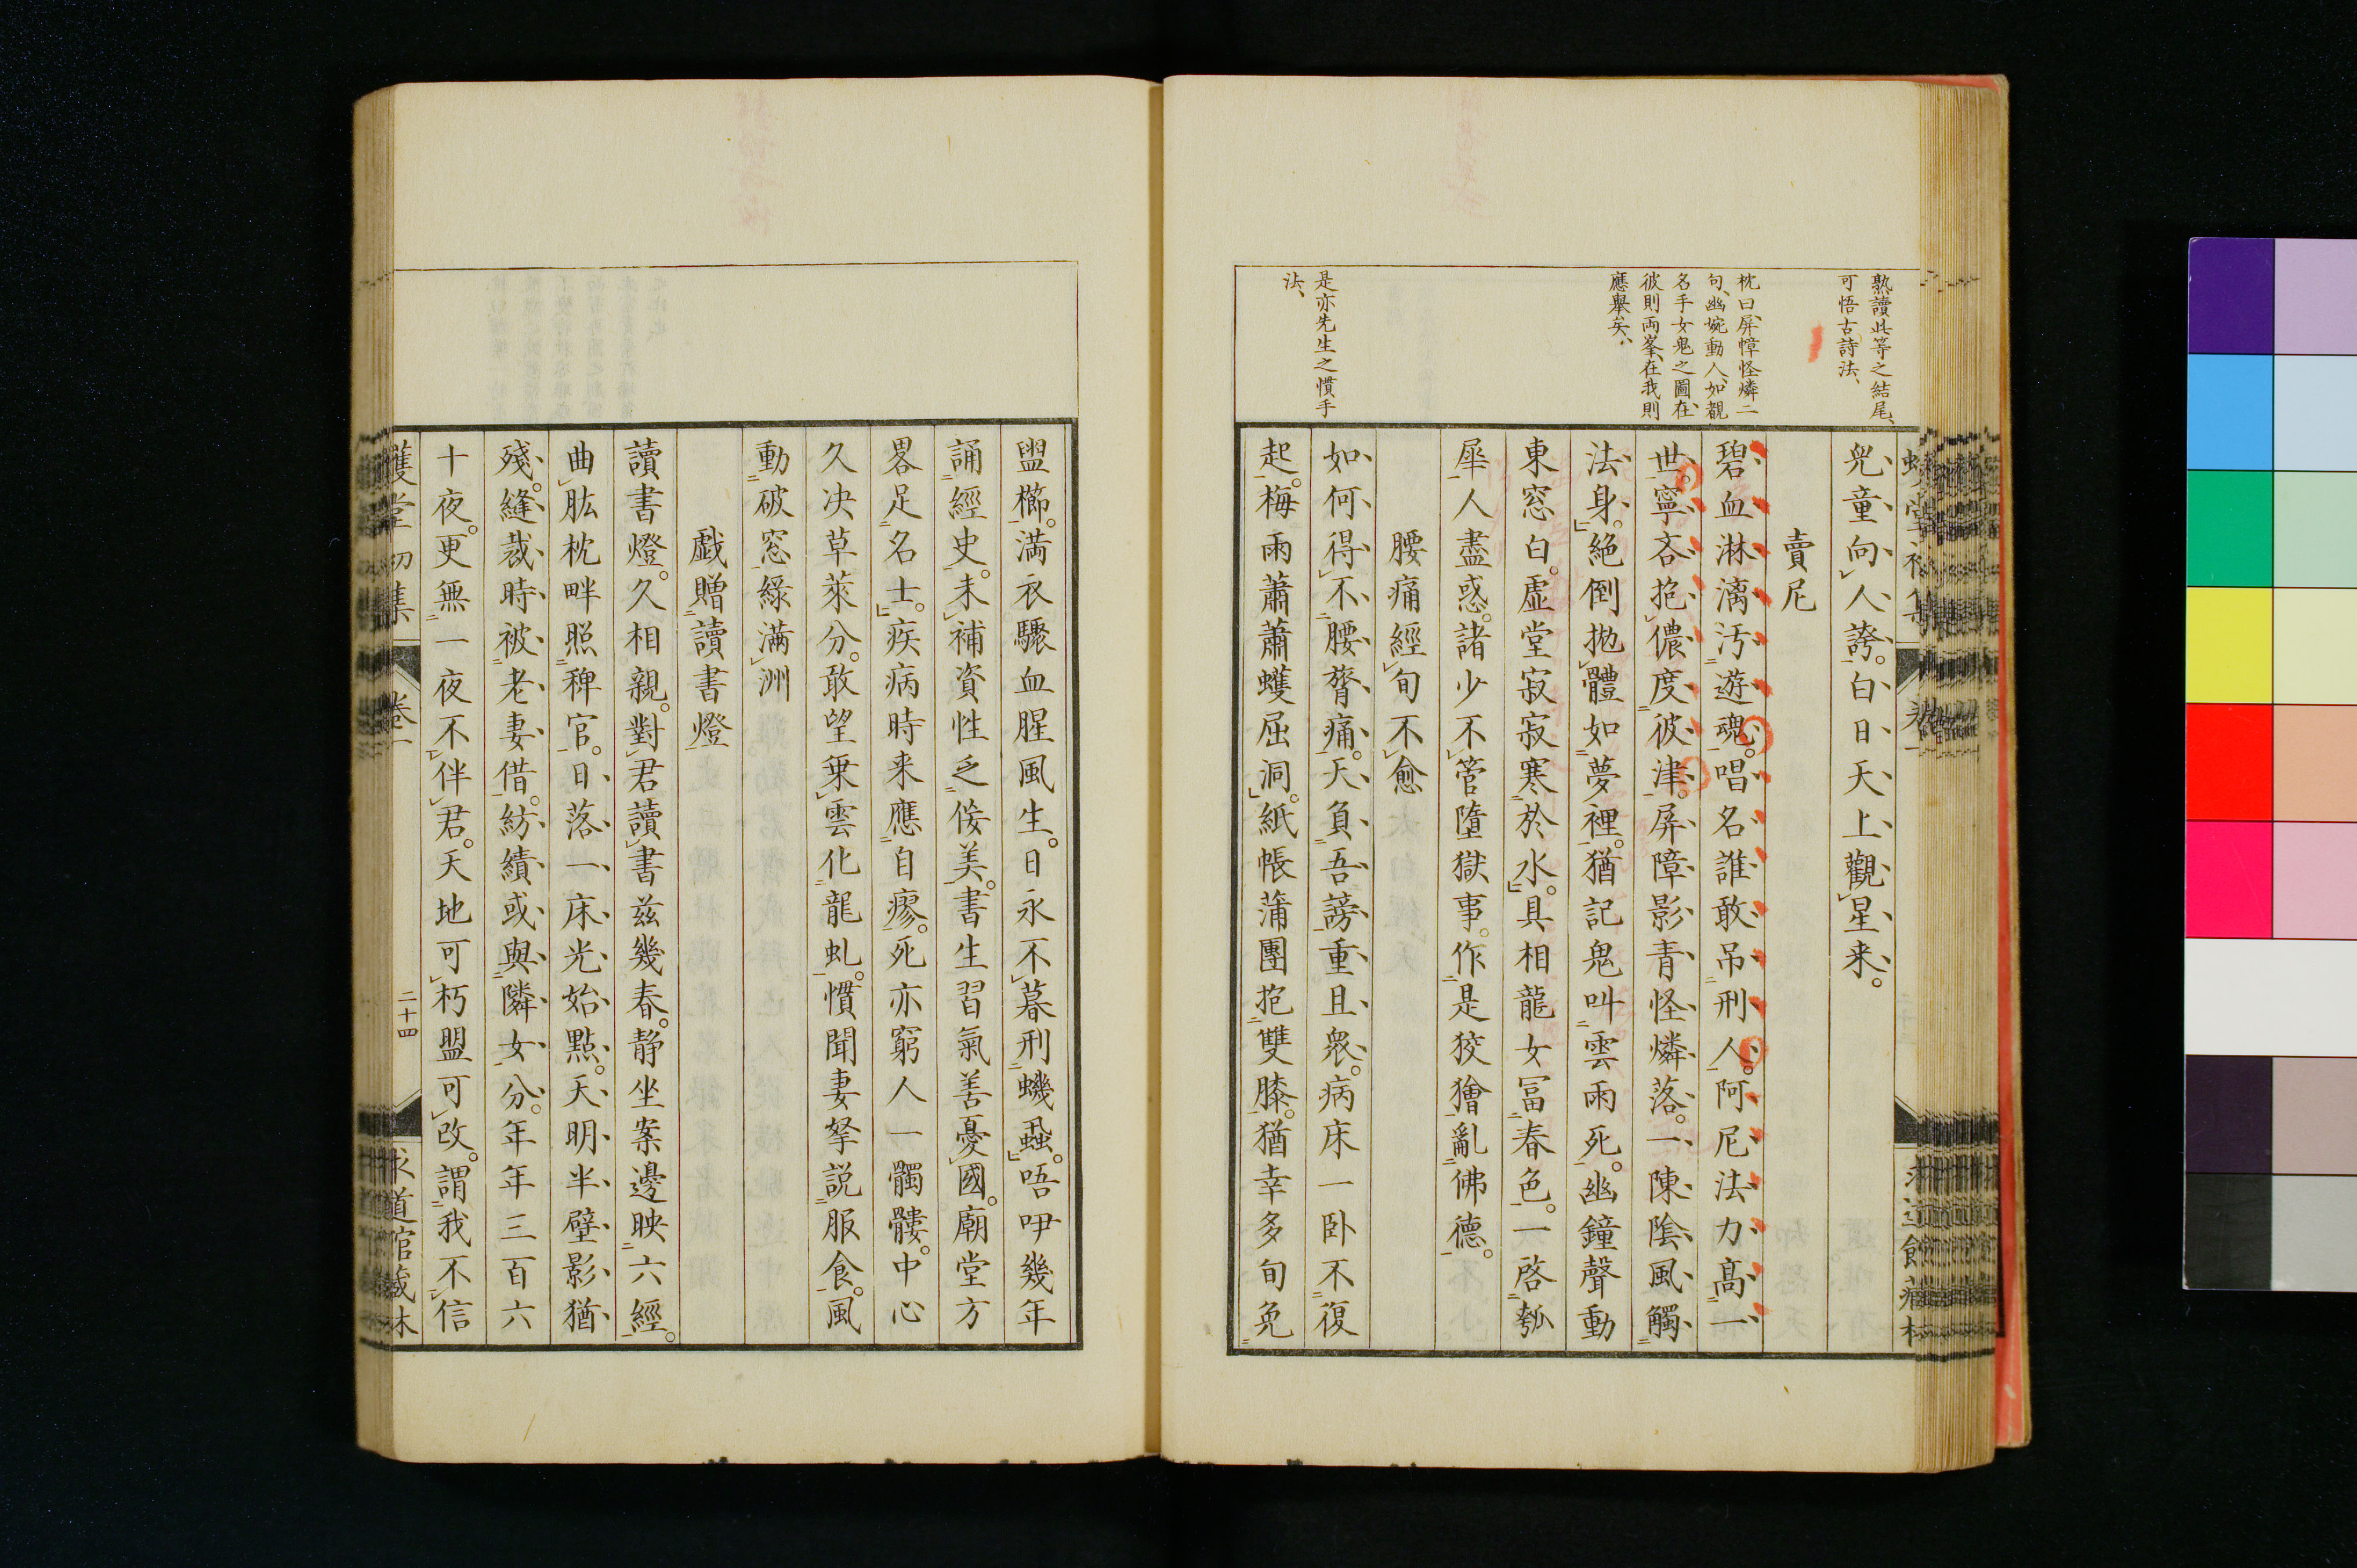 熟讀此等之結尾、
可悟古詩法、
枕曰、屏幛怪燐二
句、幽婉動人、如覩
名手女鬼之圖、在
彼則両峯、在我則
應擧矣、
是亦先生之慣手
法、
兒童向人誇。白日天上觀星来。
賣尼
碧血淋漓汚遊魂。唱名誰敢吊刑人。阿尼法力髙一
世。寧吝抱儂度彼津。屏障影青怪燐落。一陳陰風觸
法身。絶倒抛體如夢裡。猶記鬼叫雲雨死。幽鐘聲動
東窓白。虚堂寂寂寒於水。具相龍女冨春色。一啓瓠
犀人盡惑。諸少不管墮獄事。作是狡獪亂佛德。
腰痛經旬不愈
如何得不腰膂痛。天負吾謗重且衆。病床一卧不復
起。梅雨蕭蕭蠖屈洞。紙帳蒲團抱雙膝。猶幸多旬免
盥櫛。滿衣驟血腥風生。日永不暮刑蟣蝨。唔咿幾年
誦經史。未補資性乏倰美。書生習氣善憂國。廟堂方
畧足名士。疾病時来應自瘳。死亦窮人一髑髏。中心
久决草萊分。敢望乗雲化龍虬。慣聞妻拏説服食。風
動破窓緑滿洲
戯贈讀書燈
讀書燈。久相親。對君讀書茲幾春。静坐案邊映六經。
曲肱枕畔照稗官。日落一床光始點。天明半壁影猶
殘。縫裁時被老妻借。紡績或與隣女分。年年三百六
十夜。更無一夜不伴君。天地可朽盟可改。謂我不信
蠖堂初集
卷一
二十四
求道館蔵